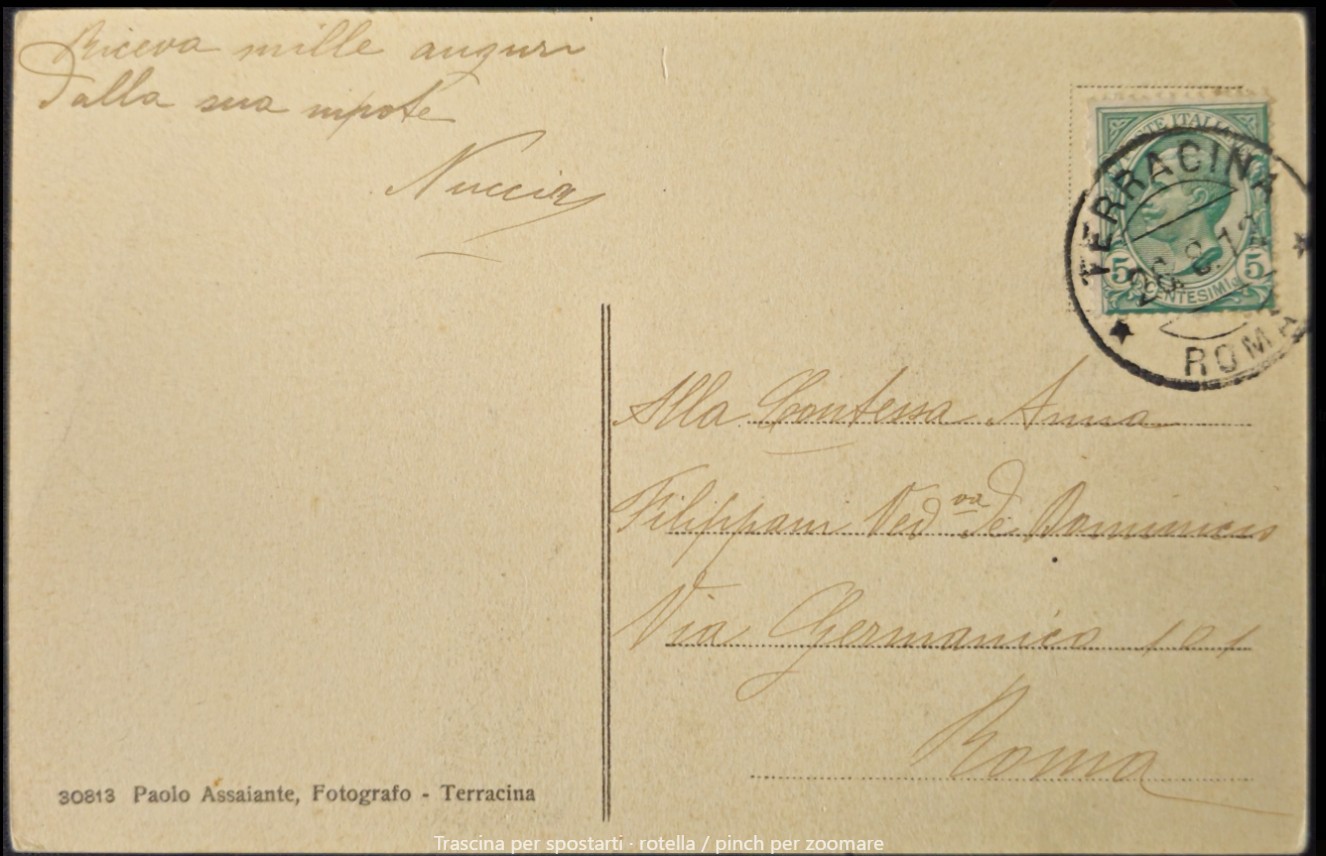 Riceva mille auguri
dalla sua nipote
Nuccia
POSTE ITALIANE
5 CENTESIMI 5
TERRACINA
26.8.12
ROMA
Alla Contessa Anna
Filippani Ved.va De Dominicis
Via Germanico 101
Roma
30813 Paolo Assaiante, Fotografo - Terracina
Trascina per spostarti · rotella / pinch per zoomare